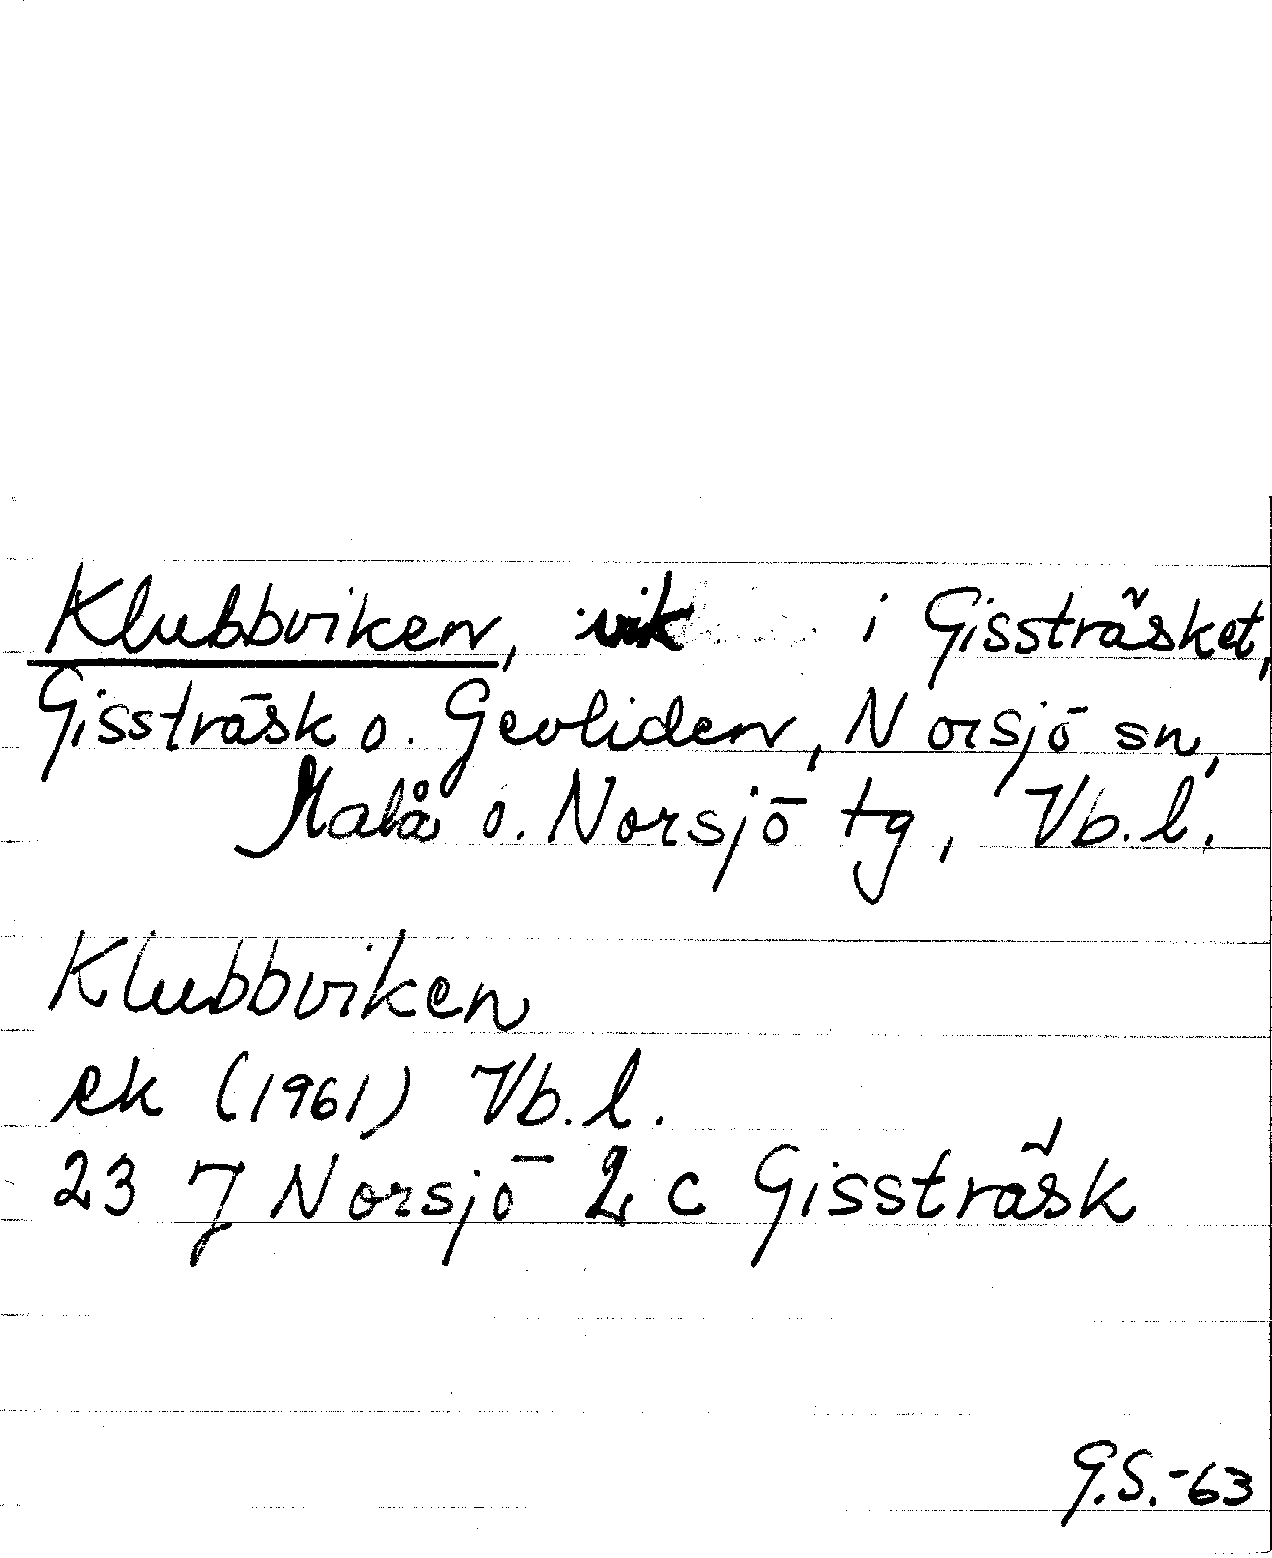 Klubbviken, vik i Gissträsket,
Gissträsk o. Gevliden, Norsjö sn,
Malå o. Norsjö tg, Vb.l.
Klubbviken
ek (1961) Vb.l.
23 J Norsjö 2 c Gissträsk
G.S.-63